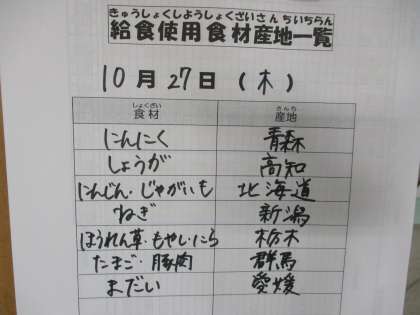 きゅうしょくしようしょくざいさんちいちらん
給食使用食材産地一覧
10月27日(木)
しょくざい さんち
食材 産地
にんにく 青森
しょうが 高知
にんじん・じゃがいも 北海道
ねぎ 新潟
ほうれん草・もやし・にら 栃木
たまご・豚肉 群馬
まだい 愛媛